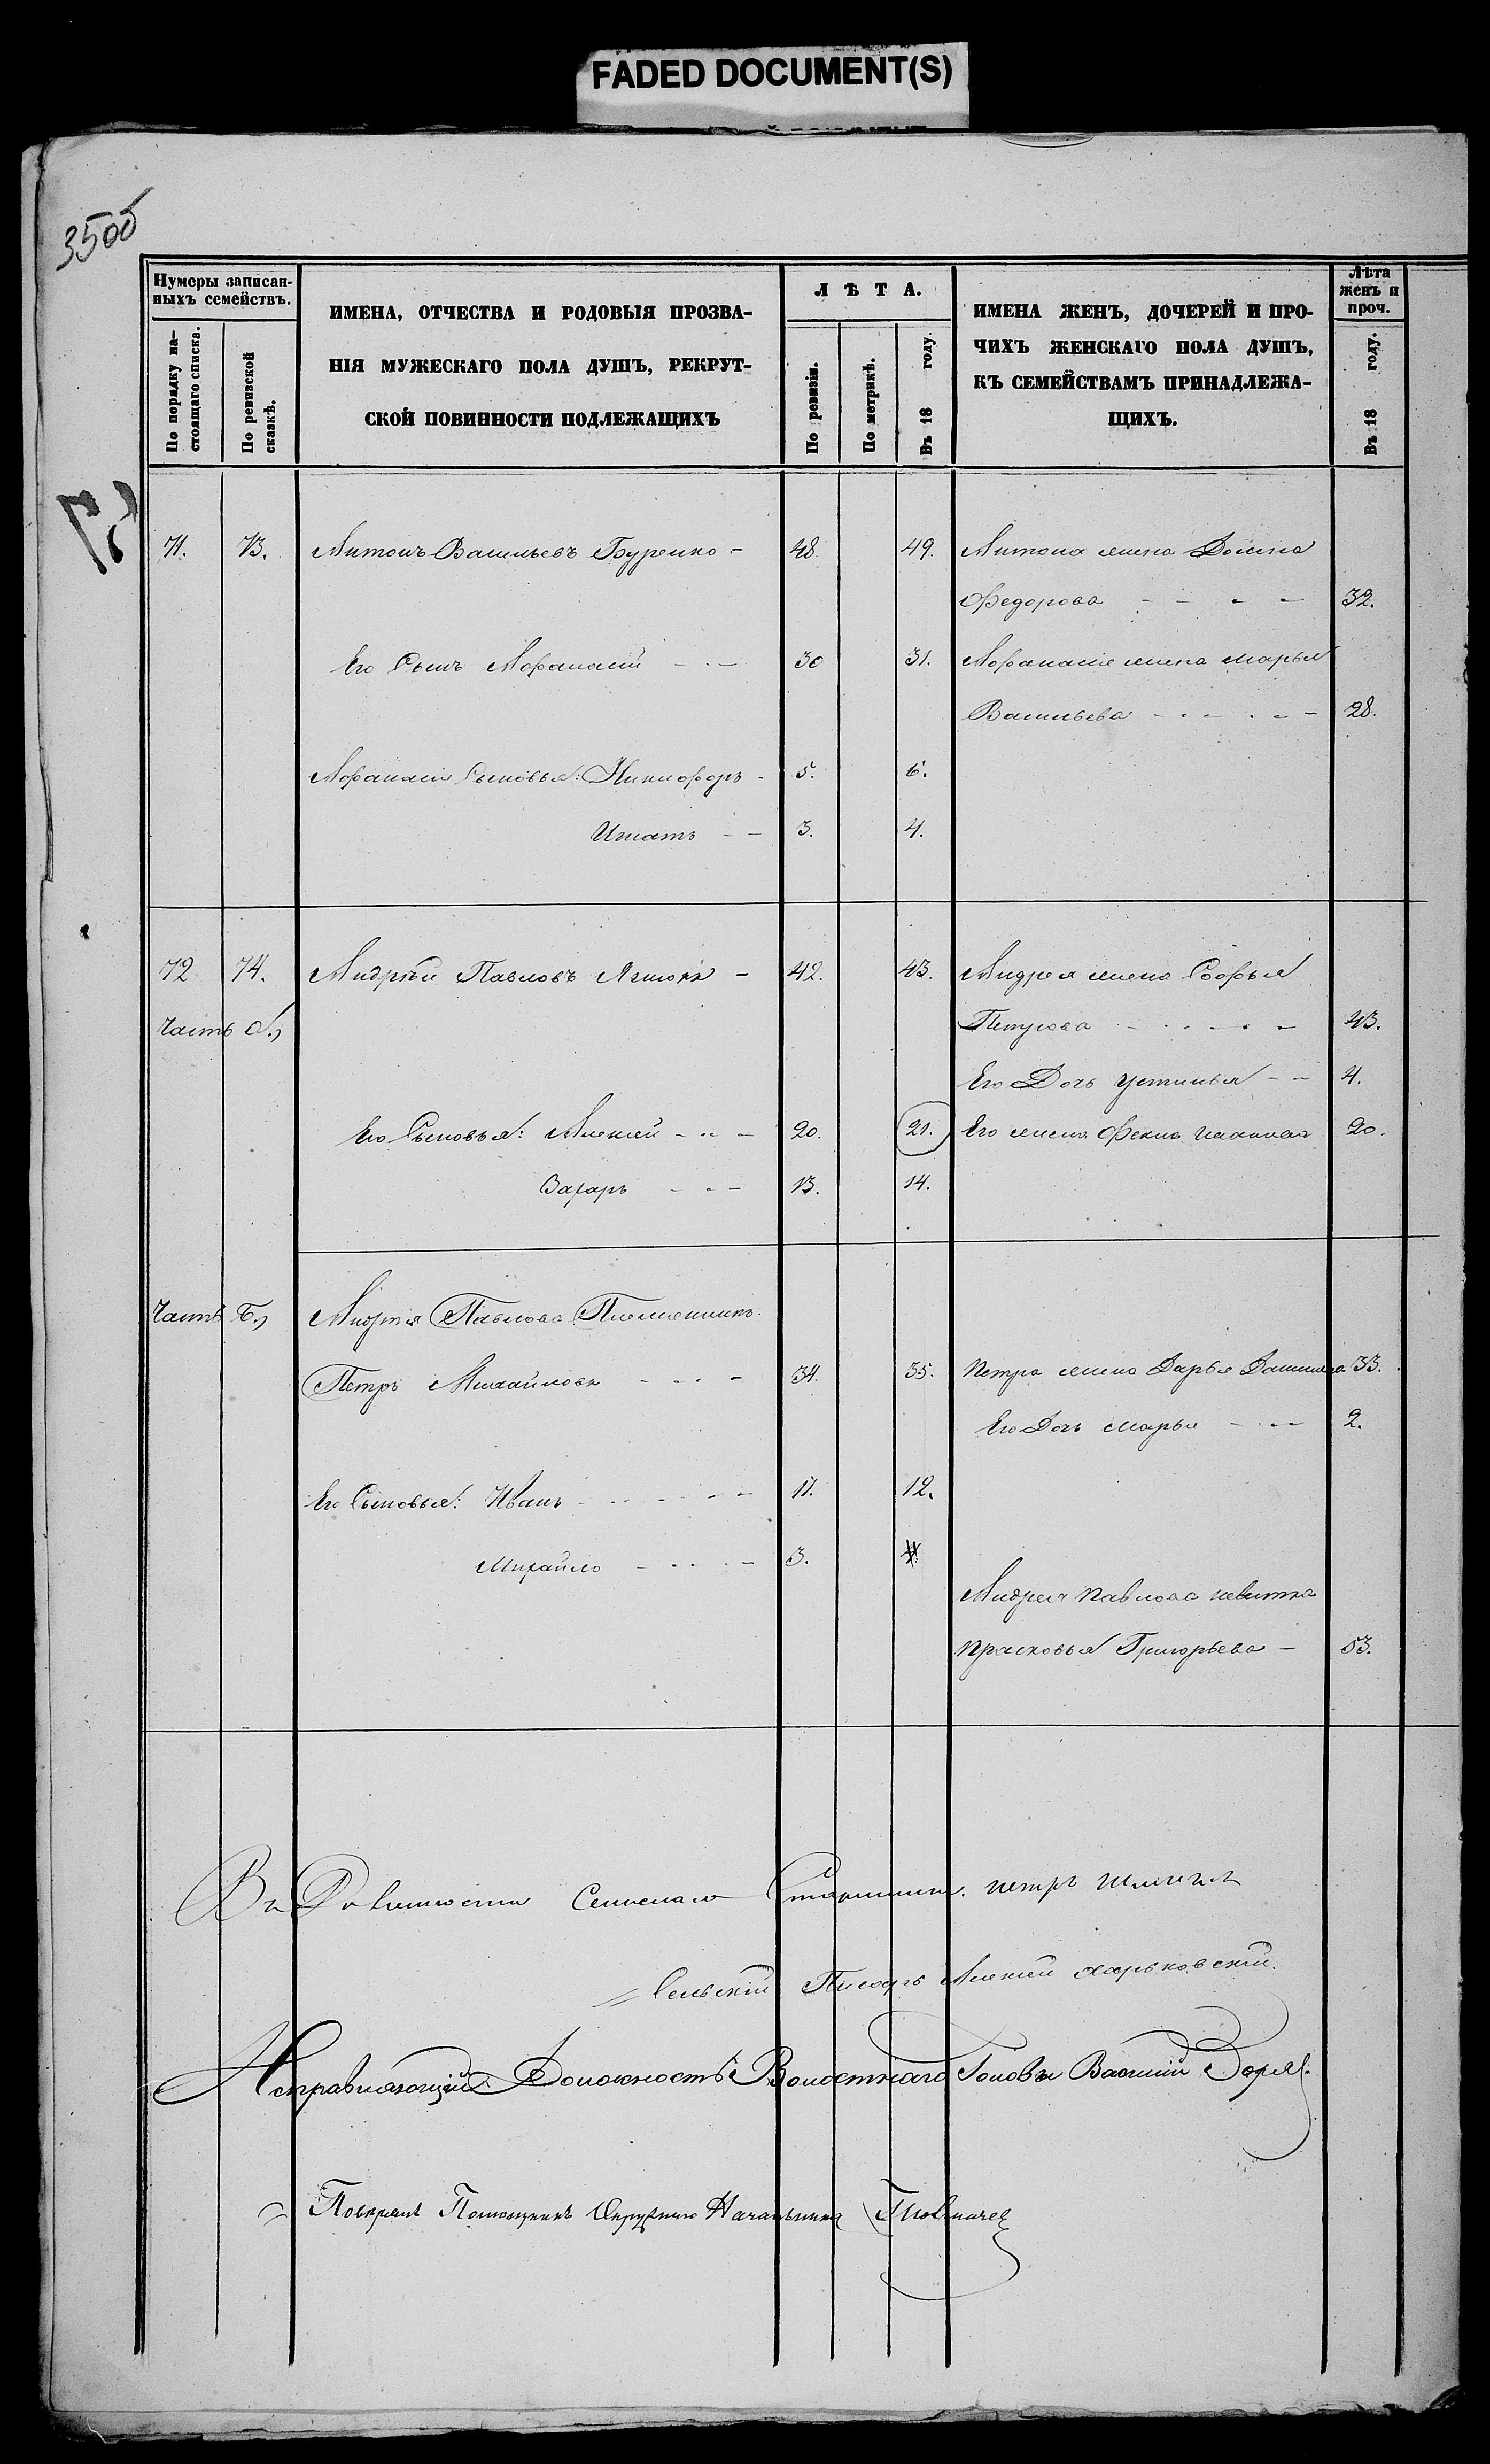 FADED DOCUMENT(S)
35об
Нумеры записан-
ныхъ семействъ.
По порядку на-
стоящаго списка.
По ревизской
сказкѣ.
ИМЕНА, ОТЧЕСТВА И РОДОВЫЯ ПРОЗВА-
НІЯ МУЖЕСКАГО ПОЛА ДУШЪ, РЕКРУТ-
СКОЙ ПОВИННОСТИ ПОДЛЕЖАЩИХЪ
ЛѢТА.
По ревизіи.
По метрикѣ.
Въ 18 году.
ИМЕНА ЖЕНЪ, ДОЧЕРЕЙ И ПРО-
ЧИХЪ ЖЕНСКАГО ПОЛА ДУШЪ,
КЪ СЕМЕЙСТВАМЪ ПРИНАДЛЕЖА-
ЩИХЪ.
Лѣта
женъ и
проч.
Въ 18 году.
71. 73. Антонъ Васильевъ Буренко - 48. 49. Антона жена Домна
Федорова - - - - 32.
Его Сынъ Афанасій - - - 30 31. Афанасія жена Марья
Васильева - - - - - 28.
Афанасія Сыновья: Никифоръ - 5. 6.
Игнатъ - - 3. 4.
72 74. Андрѣй Павловъ - 42. 43. Андрея жена Софья
Часть А.) Петрова - - - - - 43.
Его Дочь Устинья - - 4.
Его Сыновья: Алексѣй - - - 20. 21. Его жена Фекла 20.
Захаръ - - - 13. 14.
Часть Б.) Андрѣя Павлова Племянникъ
Петръ Михайловъ - - - - 34. 35. Петра жена Дарья Данилова 33.
Его Дочь Марья - - - 2.
Его Сыновья: Иванъ - - - - - - 11. 12.
Михайло - - - - - 3. 4.
Андрея Павлова невѣстка
Прасковья Григорьева - 53.
Сельскій Писарь Алексѣй Харьковскій.
Исправляющій Должность Волостнаго Головы Василій
Помощникъ Окружнаго Начальника